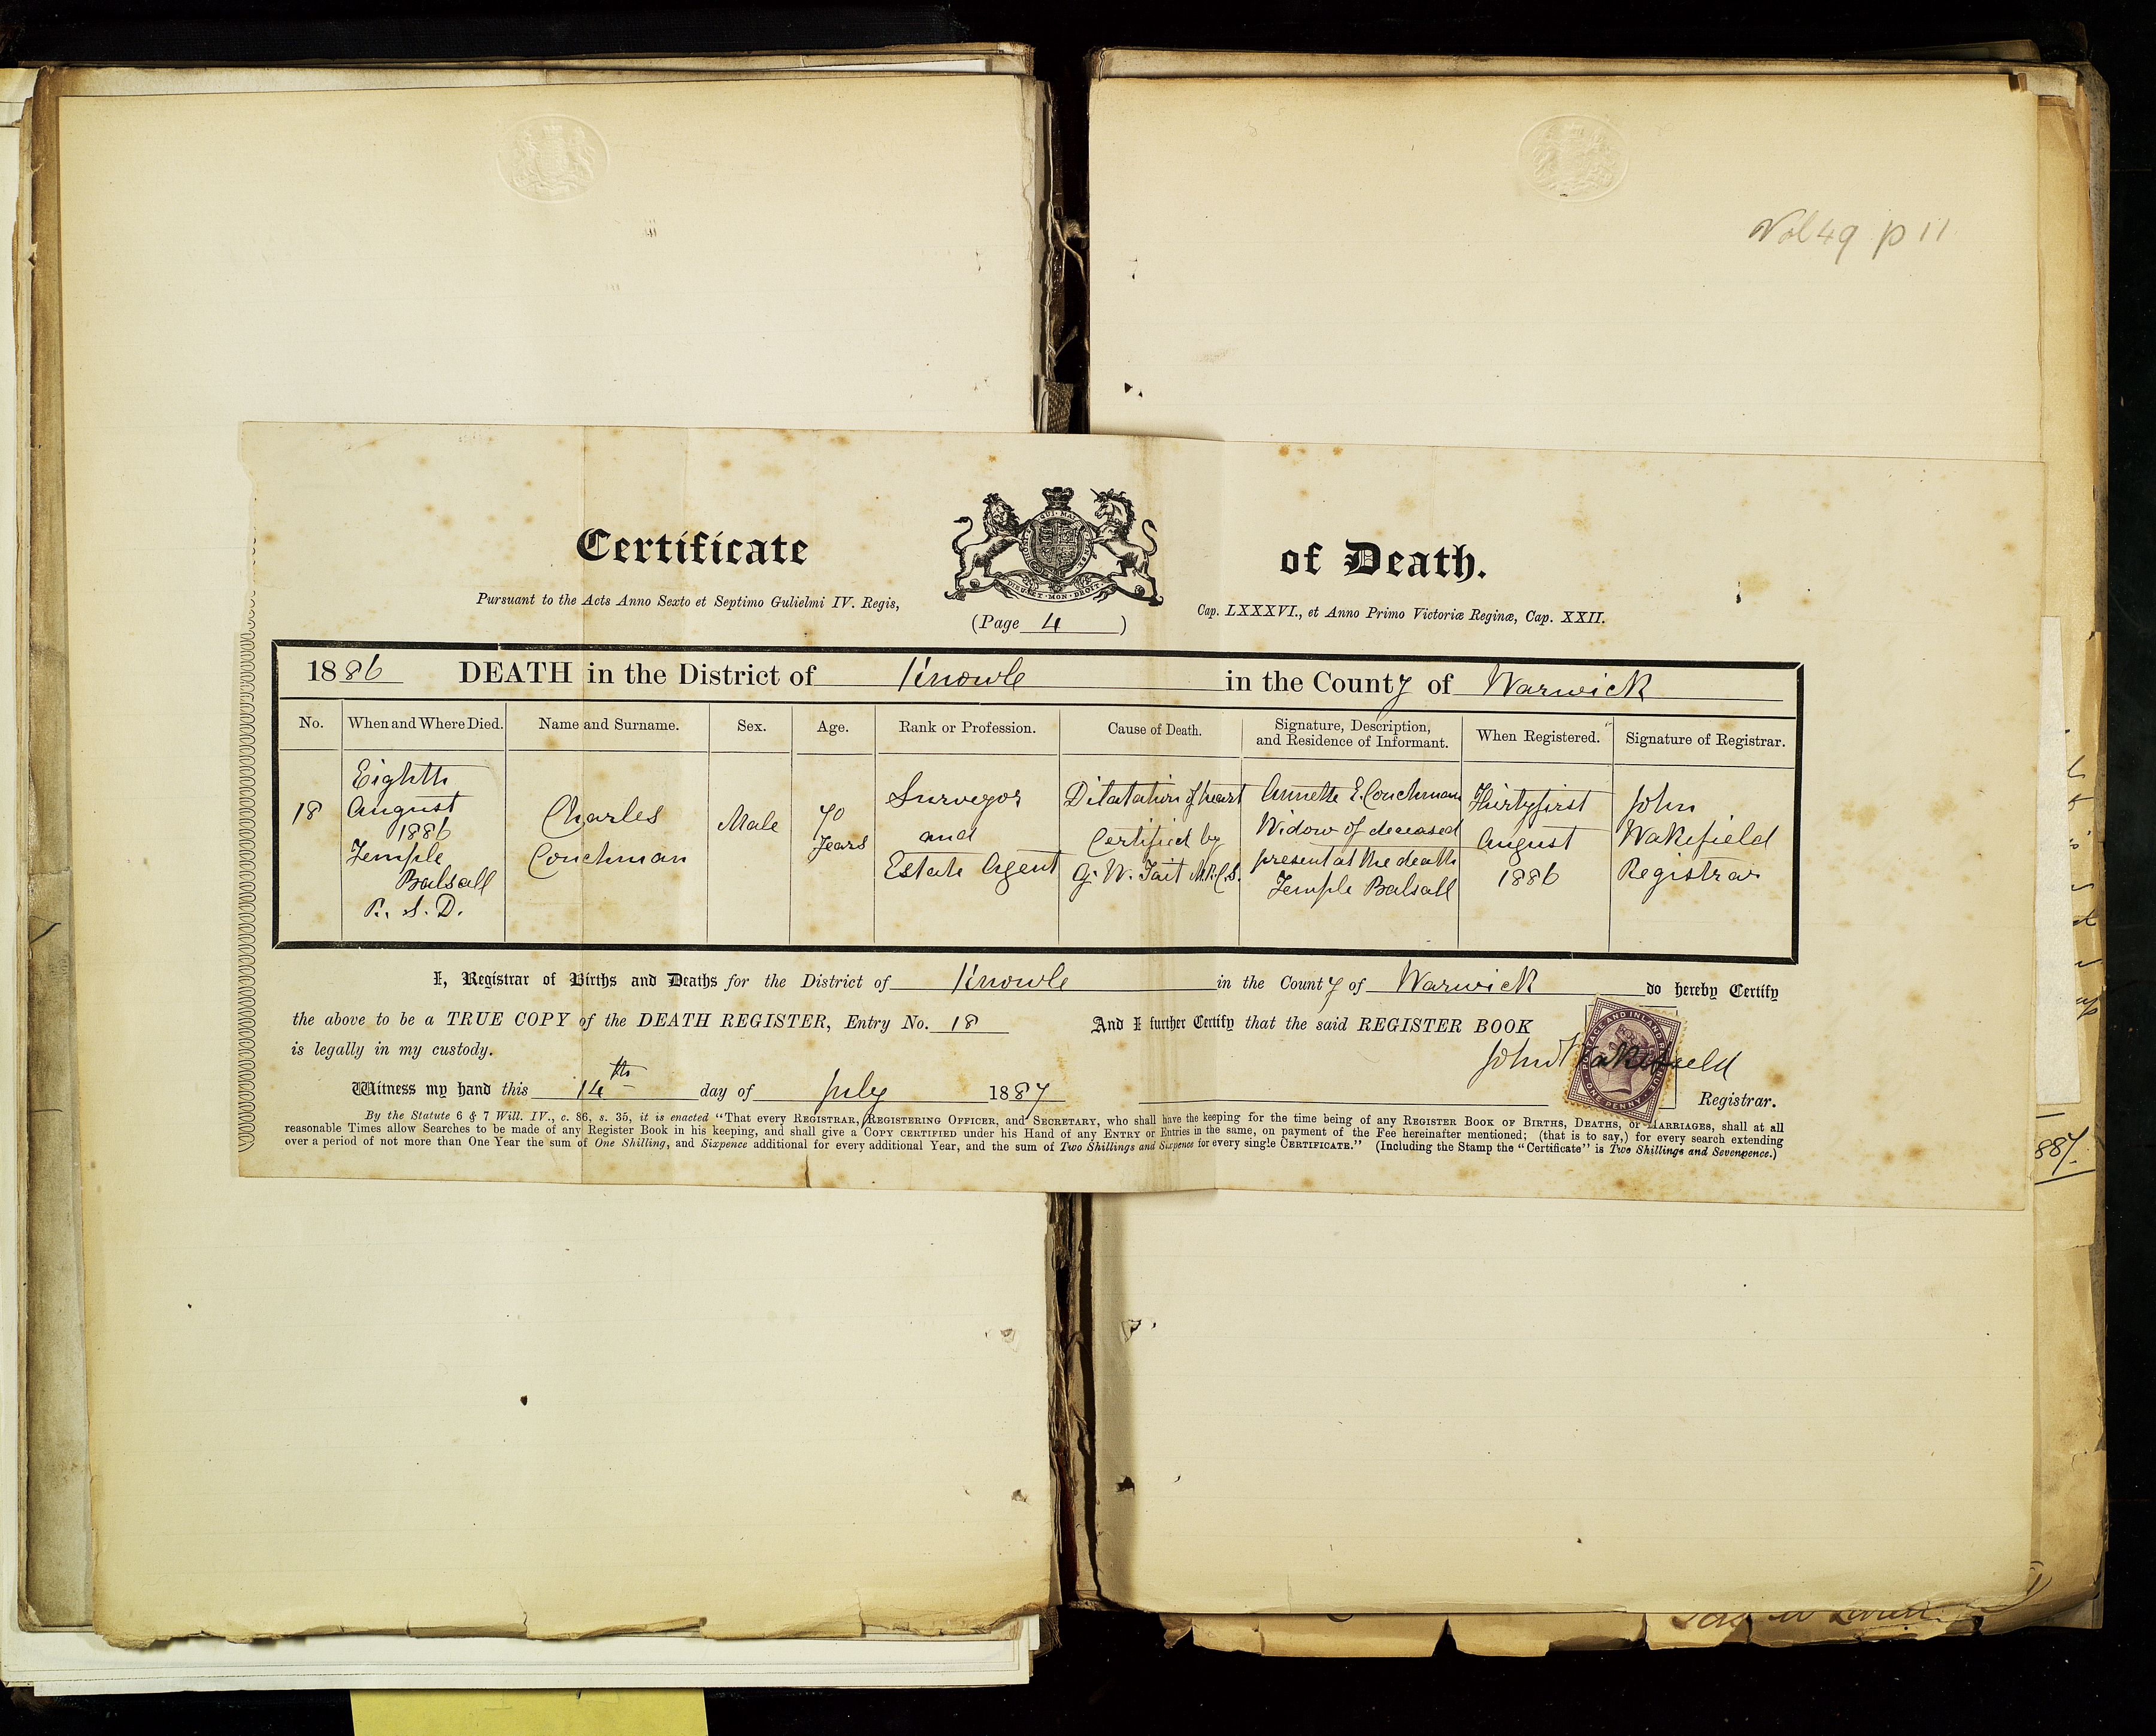 Vol 49 p 11
Certificate of Death.
Pursuant to the Acts Anno Sexto et Septimo Gulielmi IV. Regis, Cap. LXXXVI., et Anno Primo Victoriæ Reginæ, Cap. XXII.
DIEU ET MON DROIT
(Page 4)
1886 DEATH in the District of Knowle in the County of Warwick
No.
When and Where Died.
Name and Surname.
Sex.
Age.
Rank or Profession.
Cause of Death.
Signature, Description,
and Residence of Informant.
When Registered.
Signature of Registrar.
18
Eighth
August
1886
Temple
Balsall
R. S. D.
Charles
Couchman
Male
70
Years
Surveyor
and
Estate Agent
Dilatation of heart
Certified by
G. W. Tait M.R.C.S.
Annette E. Couchman
Widow of deceased
present at the death
Temple Balsall
Thirtyfirst
August
1886
John
Wakefield
Registrar
I, Registrar of Births and Deaths for the District of Knowle in the County of Warwick do hereby Certify
the above to be a TRUE COPY of the DEATH REGISTER, Entry No. 18 And I further Certify that the said REGISTER BOOK
is legally in my custody.
John Wakefield
POSTAGE AND INLAND REVENUE
ONE PENNY
Witness my hand this 14th day of July 1887 Registrar.
By the Statute 6 & 7 Will. IV., c. 86, s. 35, it is enacted "That every REGISTRAR, REGISTERING OFFICER, and SECRETARY, who shall have the keeping for the time being of any REGISTER BOOK OF BIRTHS, DEATHS, or MARRIAGES, shall at all
reasonable Times allow Searches to be made of any Register Book in his keeping, and shall give a COPY CERTIFIED under his Hand of any ENTRY or Entries in the same, on payment of the Fee hereinafter mentioned; (that is to say,) for every search extending
over a period of not more than One Year the sum of One Shilling, and Sixpence additional for every additional Year, and the sum of Two Shillings and Sixpence for every single CERTIFICATE." (Including the Stamp the "Certificate" is Two Shillings and Sevenpence.)
887.